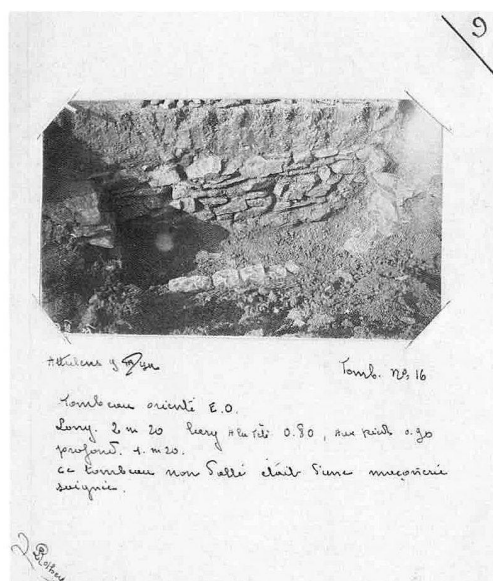 9
Attalens
Tomb. No 16
tombeau orienté E.O.
Long. 2 m 20 larg A la tête 0.80, Aux pieds 0.90
profond. 1. m 20.
ce tombeau non dallé était d'une maçonnerie
soignée.